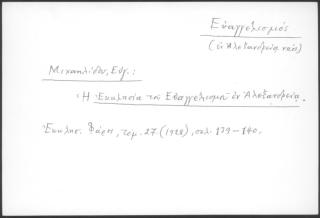 Εὐαγγελισμός
(ἐν Ἀλεξανδρείᾳ ναός)
Μιχαηλίδου, Εὐγ.:
«Ἡ Ἐκκλησία τοῦ Εὐαγγελισμοῦ ἐν Ἀλεξανδρείᾳ.
Ἐκκλησ. Φάρος, τομ. 27 (1928), σελ. 139-140.